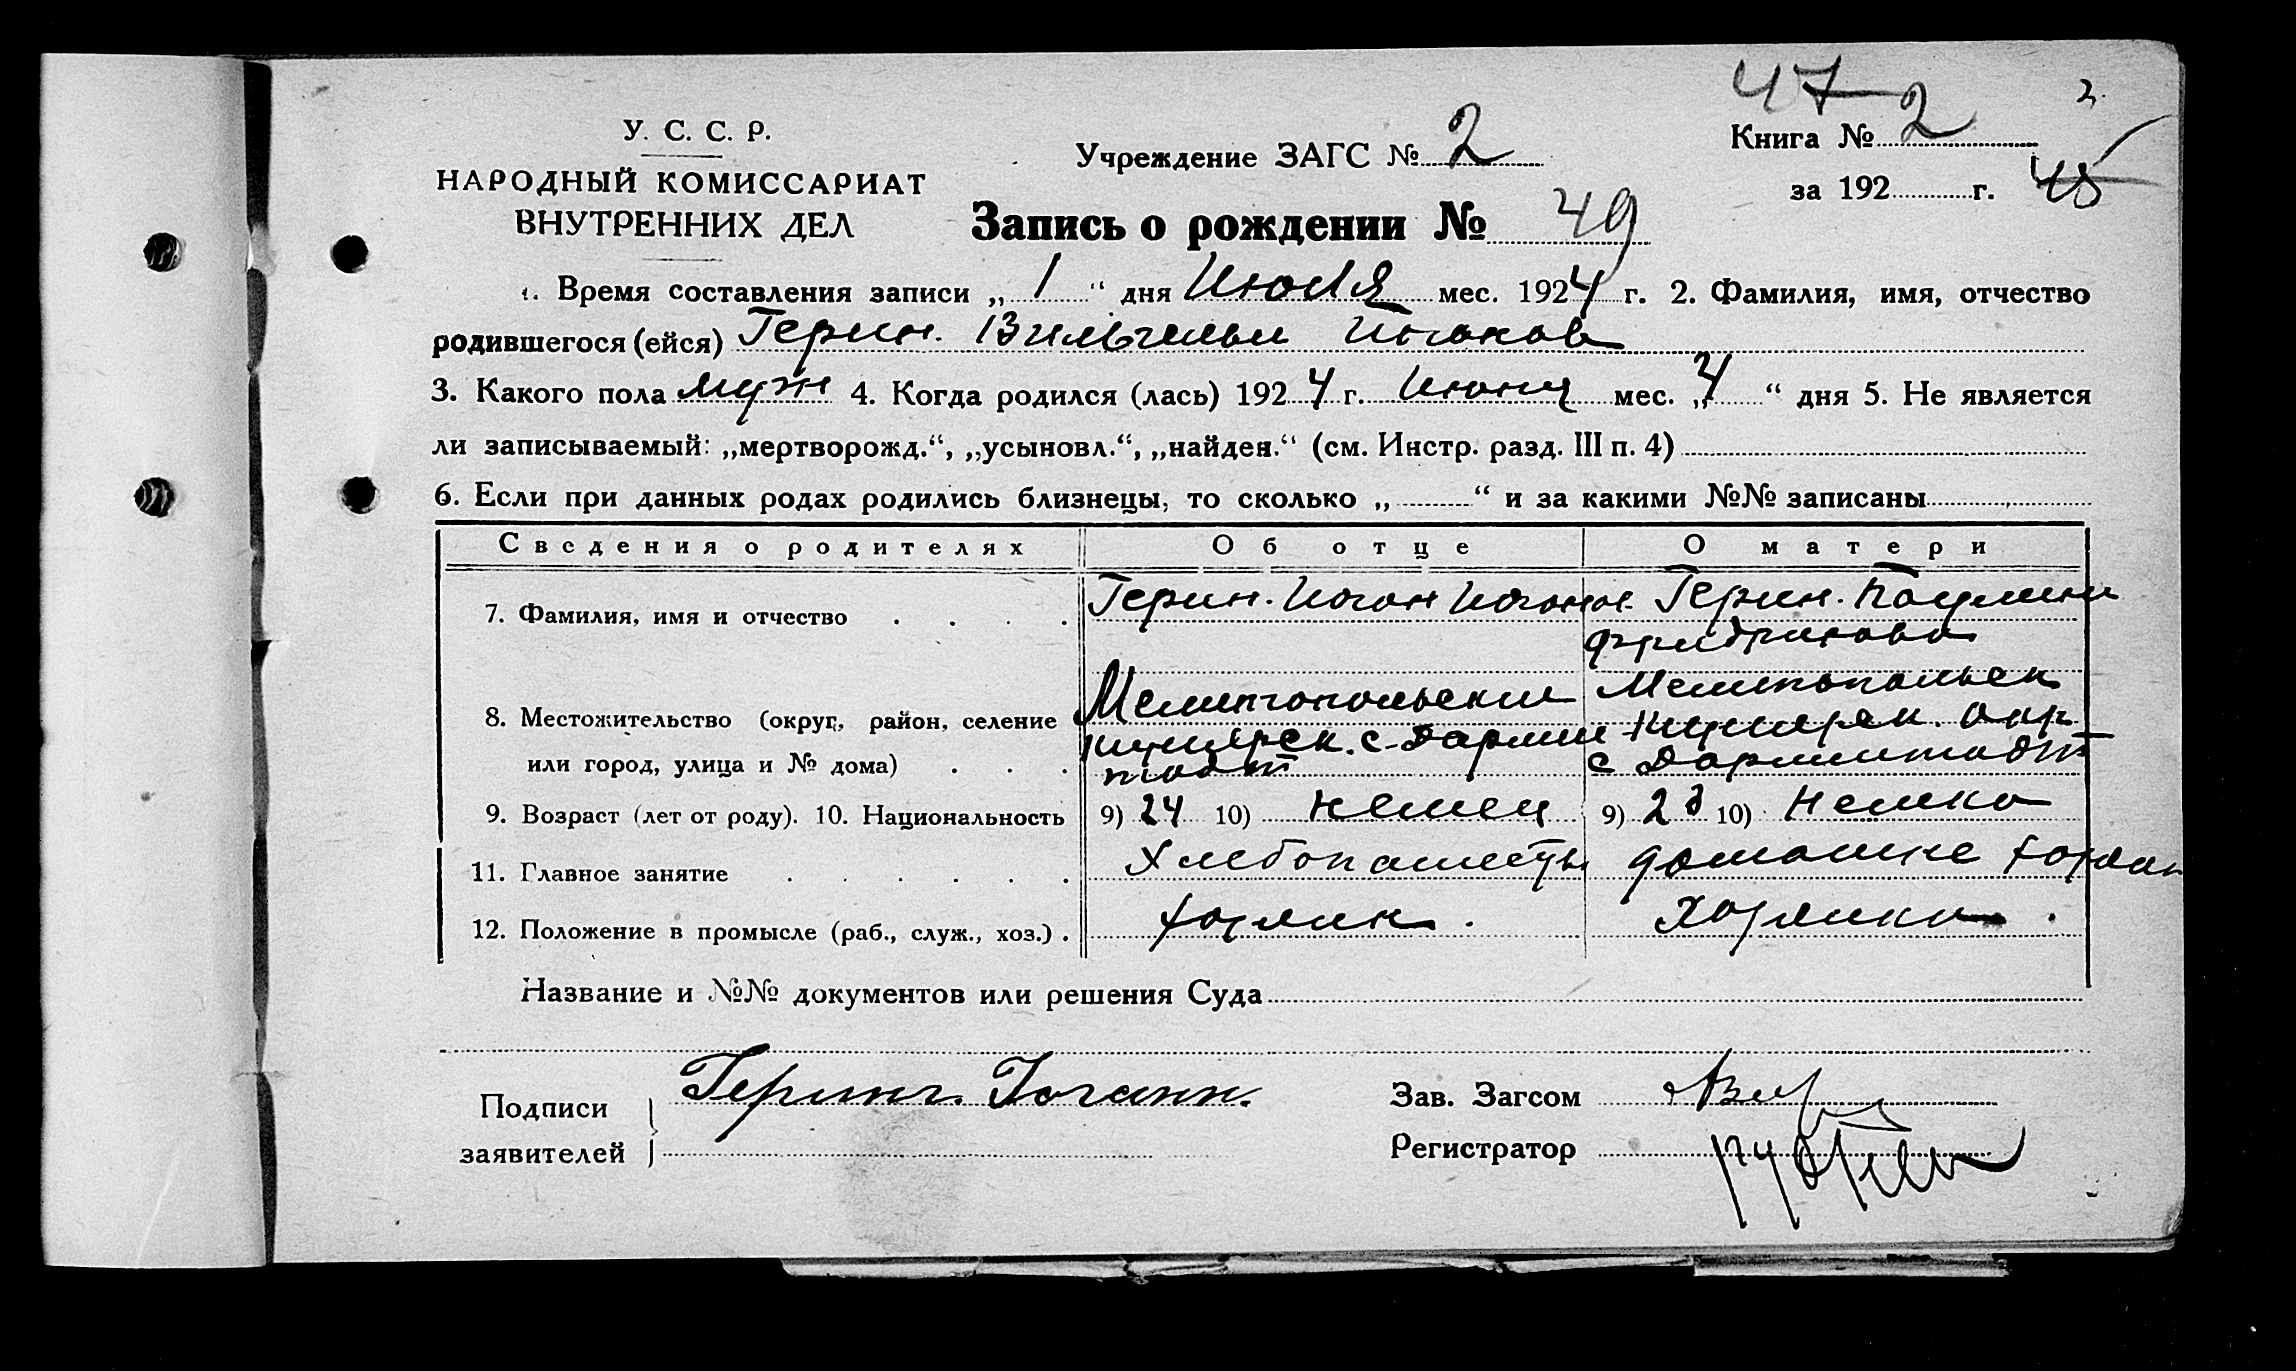 47 2.
У. С. С. Р.
Учреждение ЗАГС № 2
Книга № 2
НАРОДНЫЙ КОМИССАРИАТ
за 192 г. 45
ВНУТРЕННИХ ДЕЛ
Запись о рождении № 49
1. Время составления записи „ 1 “ дня Июля мес. 1924 г. 2. Фамилия, имя, отчество
родившегося (ейся) Герин. Вильгельм
3. Какого пола муж 4. Когда родился (лась) 1924 г. Июня мес. „ 4 “ дня 5. Не является
ли записываемый: „мертворожд.“, „усыновл.“, „найден.“ (см. Инстр. разд. III п. 4)
6. Если при данных родах родились близнецы, то сколько „ “ и за какими №№ записаны
Сведения о родителях Об отце О матери
7. Фамилия, имя и отчество Герин. Иоган Иоган Герин. Паулина
Фридрихова
8. Местожительство (округ, район, селение Мелитопольский Мелитопольск
или город, улица и № дома) с. Дармш с Дармштадт
тадт
9. Возраст (лет от роду). 10. Национальность 9) 24 10) немец 9) 10) Немка
11. Главное занятие Хлебопашеств домашнее
12. Положение в промысле (раб., служ., хоз.)
Название и №№ документов или решения Суда
Подписи Геринг. Иоганн.
заявителей
Зав. Загсом
Регистратор